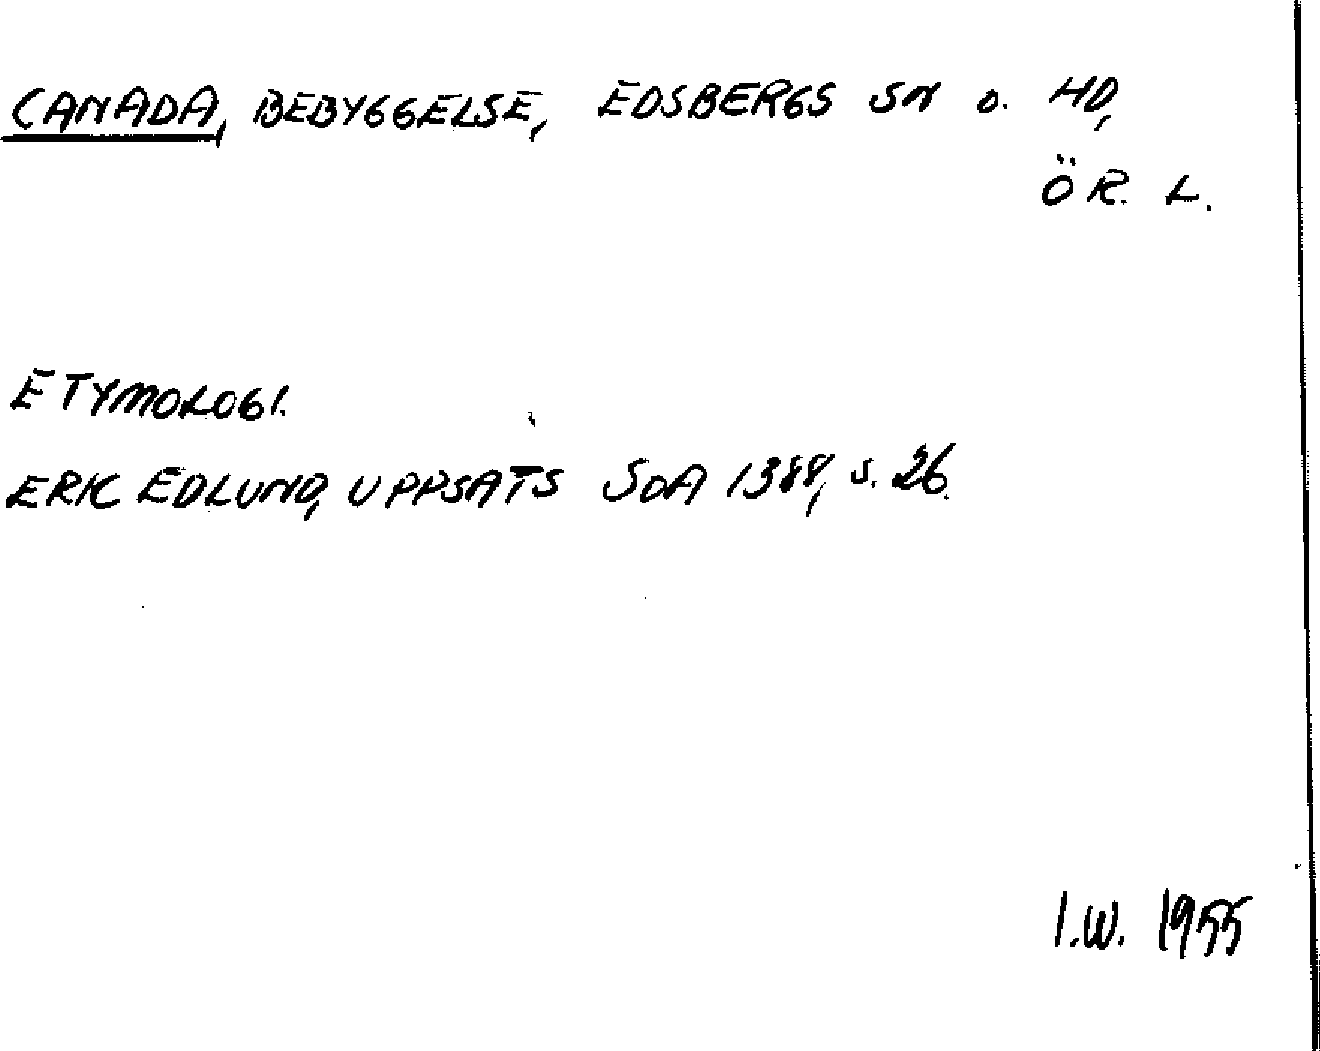 CANADA, BEBYGGELSE, EDSBERGS SN o. HD,
ÖR. L.
ETYMOLOGI.
ERIC EDLUND, UPPSATS SOA 1388, s. 26.
I.W. 1955